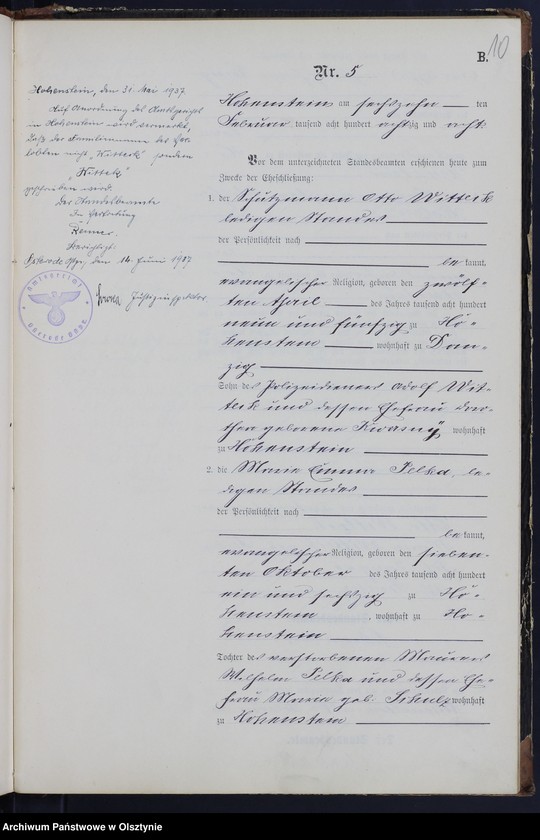 B.
10
Nr. 5
Hohenstein, den 31. Mai 1937.
Auf Anordnung des Amtsgerichts
in Hohenstein wird vermerkt,
daß der Familienname des Ver-
lobten nicht "Witteck" sondern
"Wittek"
geschrieben wird.
Der Standesbeamte
In Vertretung
Renner.
den 14. Juni 1937
Justizinspektor
Amtsgericht
Hohenstein am sechszehn ten
Februar tausend acht hundert achtzig und acht
Vor dem unterzeichneten Standesbeamten erschienen heute zum
Zwecke der Eheschließung:
1. der Schutzmann Otto Witteck
ledigen Standes
der Persönlichkeit nach
be kannt,
evangelischer Religion, geboren den zwölf-
ten April des Jahres tausend acht hundert
neun und fünfzig zu Ho-
henstein wohnhaft zu Dan-
zig
Sohn des Polizeidieners Adolf Wit-
teck und dessen Ehefrau Doro-
thea geborene Kwasny wohnhaft
zu Hohenstein
2. die Marie Emma Pelka, le-
digen Standes
der Persönlichkeit nach
be kannt,
evangelischer Religion, geboren den sieben-
ten Oktober des Jahres tausend acht hundert
ein und sechszig zu Ho-
henstein, wohnhaft zu Ho-
henstein
Tochter des verstorbenen Maurers
Wilhelm Pelka und dessen Ehe-
frau Marie geb. Schulz wohnhaft
zu Hohenstein
Archiwum Państwowe w Olsztynie